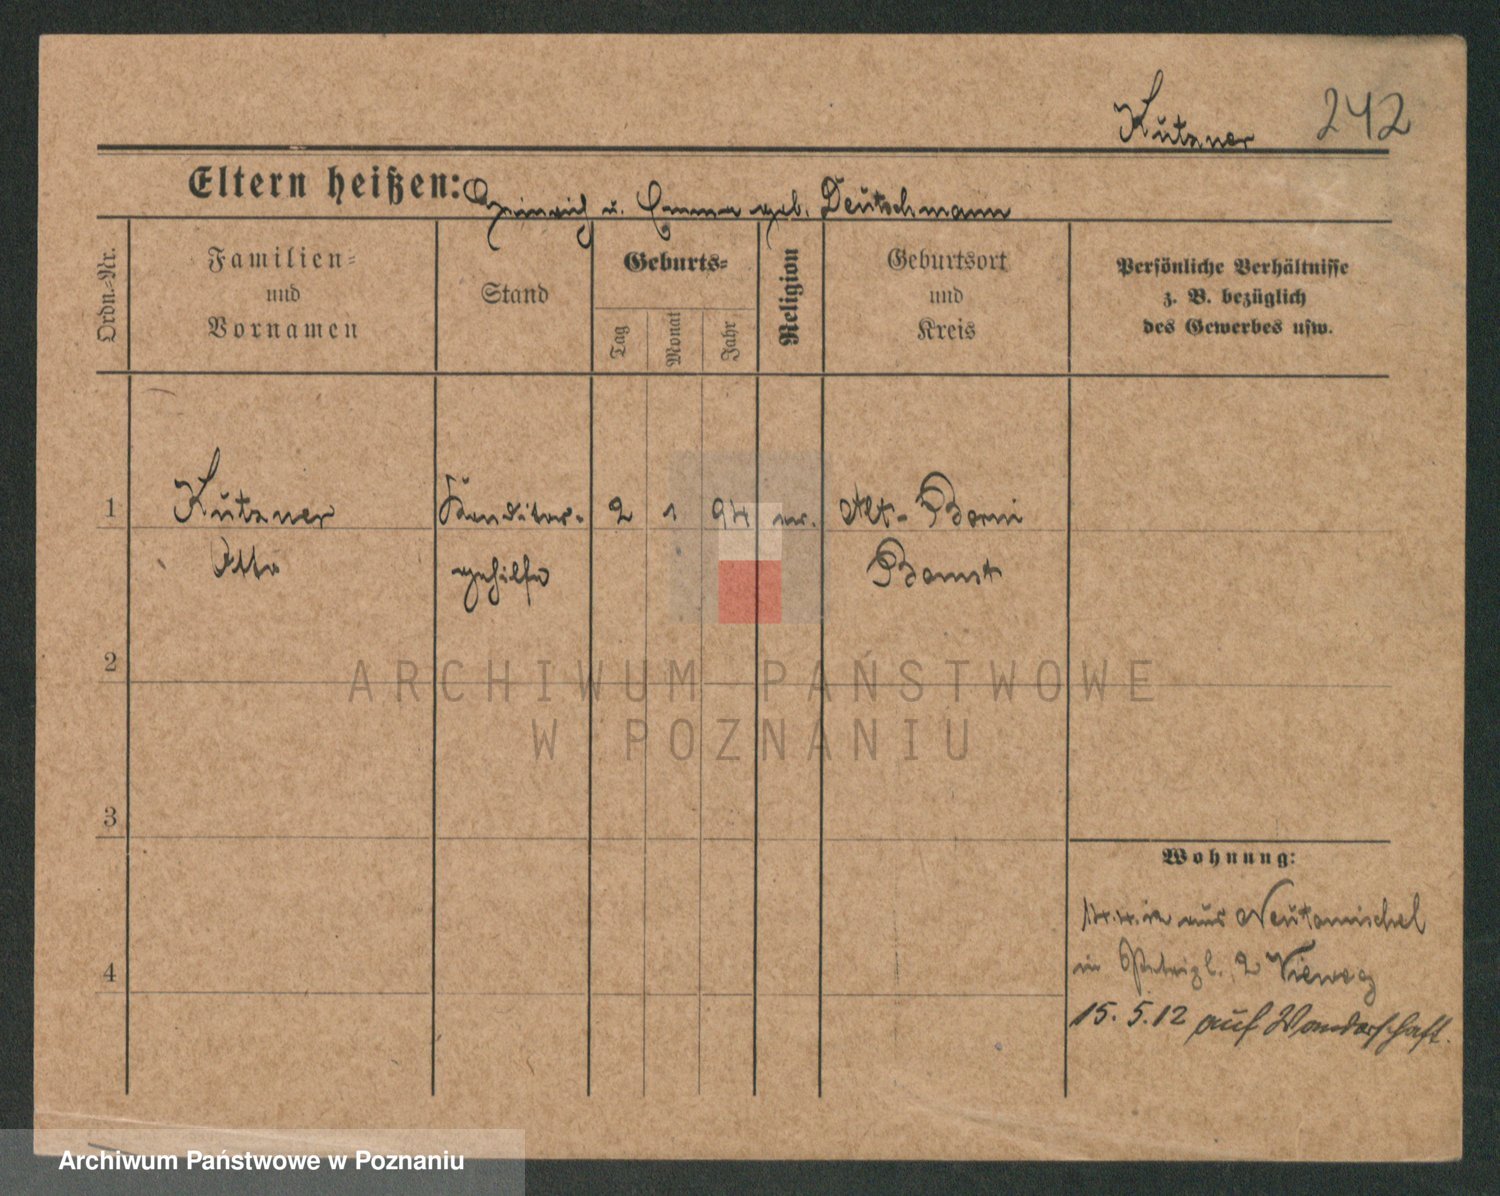 Kutzner 242
Eltern heißen: Heinrich u. Emma geb. Deutschmann
Ordn.-Nr.
Familien-
und
Vornamen
Stand
Geburts-
Tag
Monat
Jahr
Religion
Geburtsort
und
Kreis
Persönliche Verhältnisse
z. B. bezüglich
des Gewerbes usw.
1 Kutzner Konditor- 2 1 94 ev. Alt-Borui
Otto gehilfe Bomst
2
ARCHIWUM PAŃSTWOWE
W POZNANIU
3
Wohnung:
aus Neutomischel
4
in 2 Vieweg
15. 5. 12 auf Wanderschaft.
Archiwum Państwowe w Poznaniu